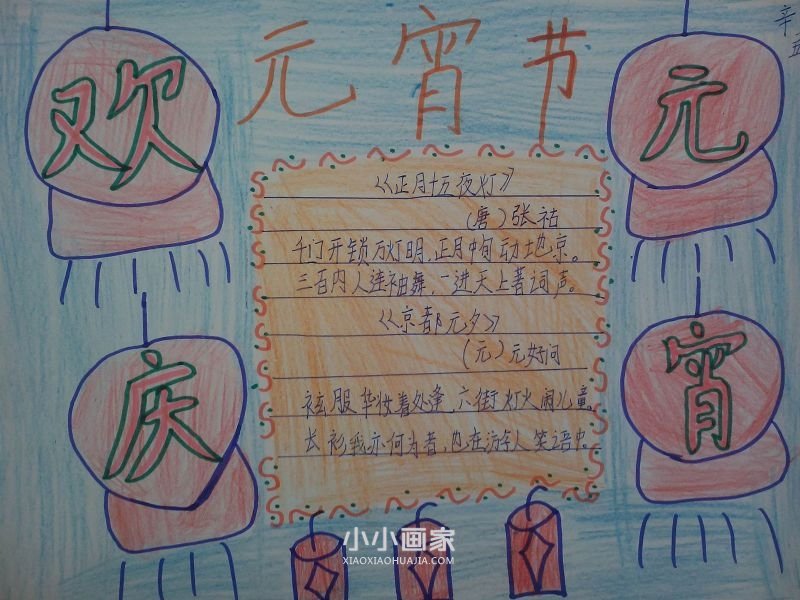 元宵节
辛
欢
元
庆
宵
《正月十五夜灯》
(唐)张祜
千门开锁万灯明,正月中旬动地京。
三百内人连袖舞,一进天上著词声。
《京都元夕》
(元)元好问
袨服华妆着处逢,六街灯火闹儿童。
长衫我亦何为者,也在游人笑语中。
小小画家
XIAOXIAOHUAJIA.COM